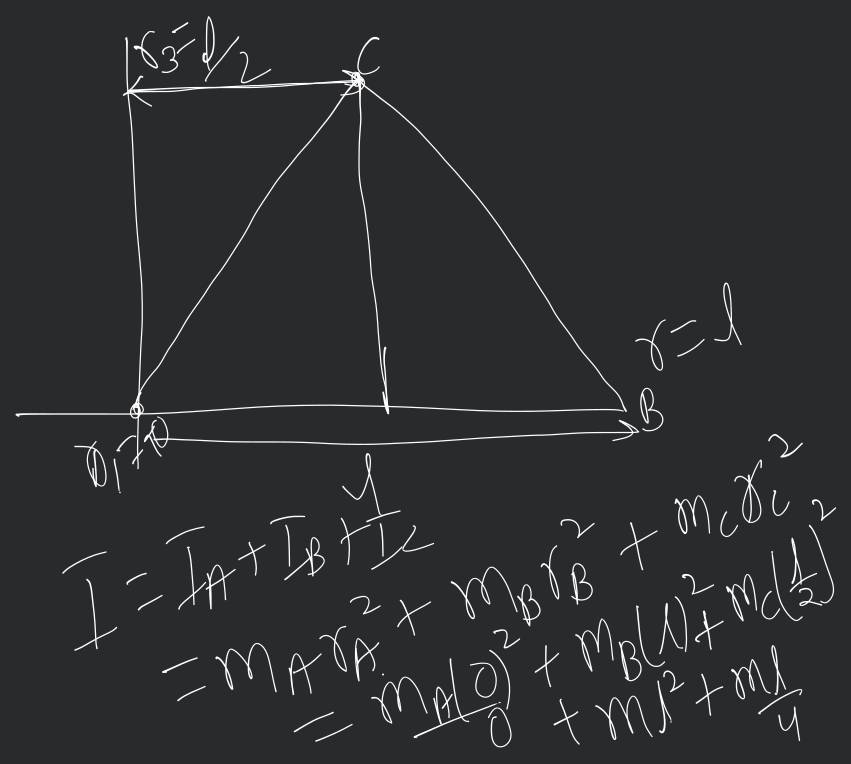 r₃ = l/2
C
r = l
B
r₁ = 0
l
I = I_A + I_B + I_C
= m_A r_A² + m_B r_B² + m_C r_C²
= m_A(0)² + m_B(l)² + m_C(l/2)²
0 + ml² + ml/4